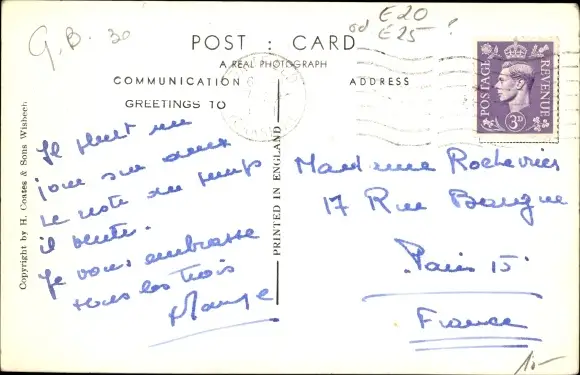 G.B. 30
E20
od E25 ?
POST : CARD
A REAL PHOTOGRAPH
COMMUNICATION
ADDRESS
GREETINGS TO
POSTAGE
REVENUE
3D
Copyright by H. Coates & Sons Wisbech
PRINTED IN ENGLAND
Il pleut un
jour sur deux
Le reste du temps
il vente.
Je vous embrasse
tous les trois
Madame Rochevrier
17 Rue
Paris 15
France